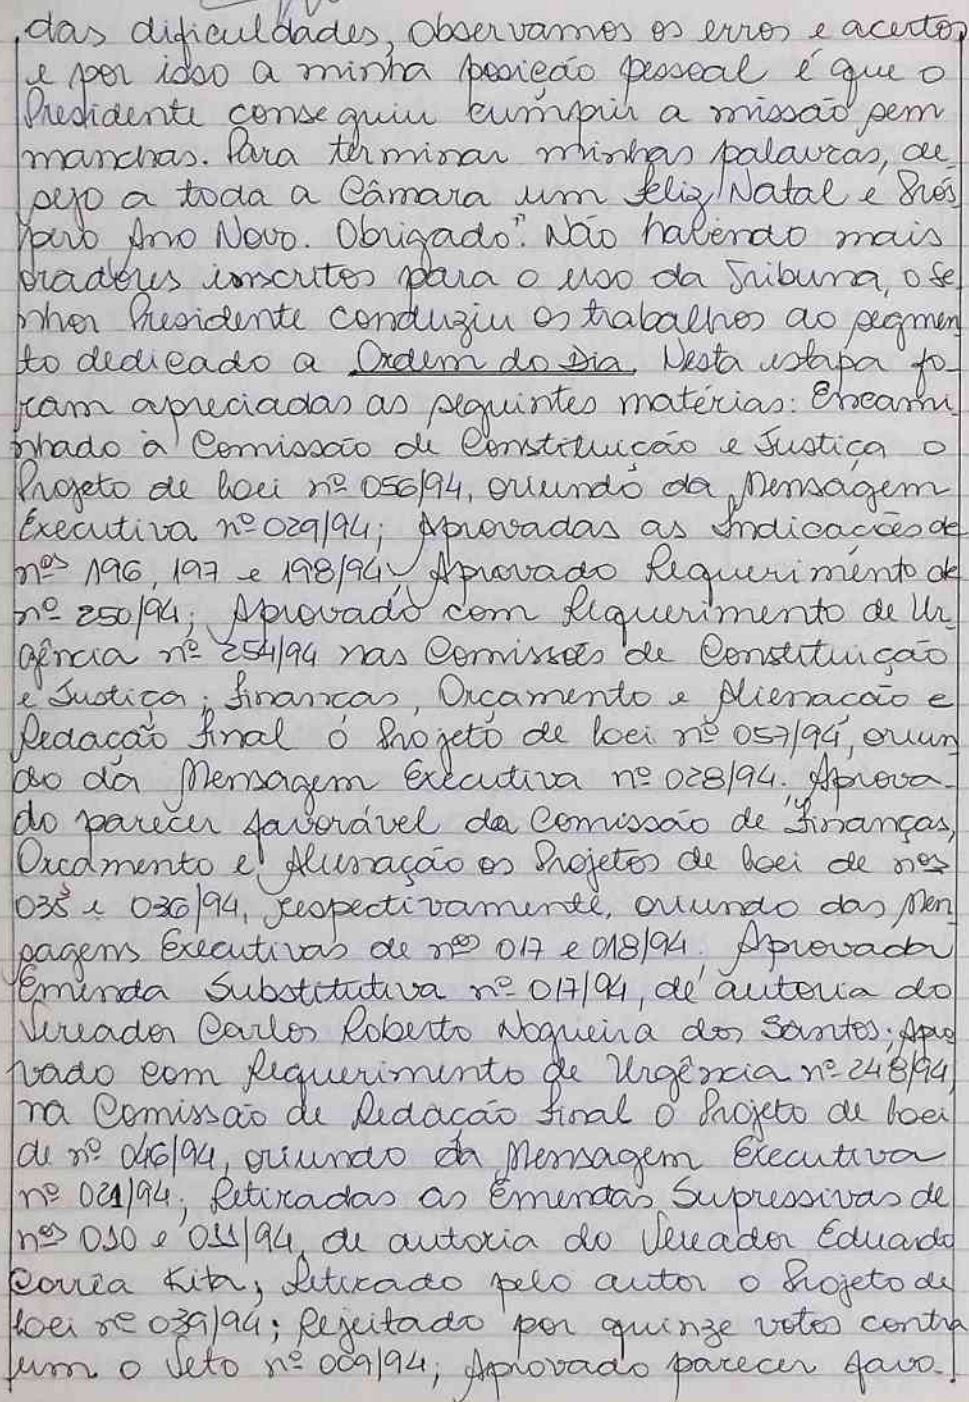 das dificuldades, observamos os erros e acertos
e por isso a minha posição pessoal é que o
Presidente conseguiu cumprir a missão sem
manchas. Para terminar minhas palavras, de-
sejo a toda a Câmara um Feliz Natal e Prós
pero Ano Novo. Obrigado". Não havendo mais
oradores inscritos para o uso da Tribuna, o Se
nhor Presidente conduziu os trabalhos ao segmen
to dedicado a Ordem do Dia. Nesta etapa fo-
ram apreciadas as seguintes matérias: Encami
nhado à Comissão de Constituição e Justiça o
Projeto de Lei nº 056/94, oriundo da Mensagem
Executiva nº 029/94; Aprovadas as Indicações de
nºs 196, 197 e 198/94; Aprovado Requerimento de
nº 250/94; Aprovado com Requerimento de Ur
gência nº 254/94 nas Comissões de Constituição
e Justiça; Finanças, Orçamento e Alienação e
Redação Final o Projeto de Lei nº 057/94, oriun
do da Mensagem Executiva nº 028/94. Aprova-
do parecer favorável da Comissão de Finanças,
Orçamento e Alienação os Projetos de Lei de nºs
035 e 036/94, respectivamente, oriundo das Men
sagens Executivas de nºs 017 e 018/94; Aprovada
Emenda Substitutiva nº 017/94, de autoria do
Vereador Carlos Roberto Nogueira dos Santos; Apro
vado com Requerimento de Urgência nº 248/94,
na Comissão de Redação Final o Projeto de Lei
de nº 046/94, oriundo da Mensagem Executiva
nº 021/94; Retiradas as Emendas Supressivas de
nºs 010 e 011/94, de autoria do Vereador Eduardo
Corrêa Kita; Retirado pelo autor o Projeto de
Lei nº 039/94; Rejeitado por quinze votos contra
um o Veto nº 009/94; Aprovado parecer favo-